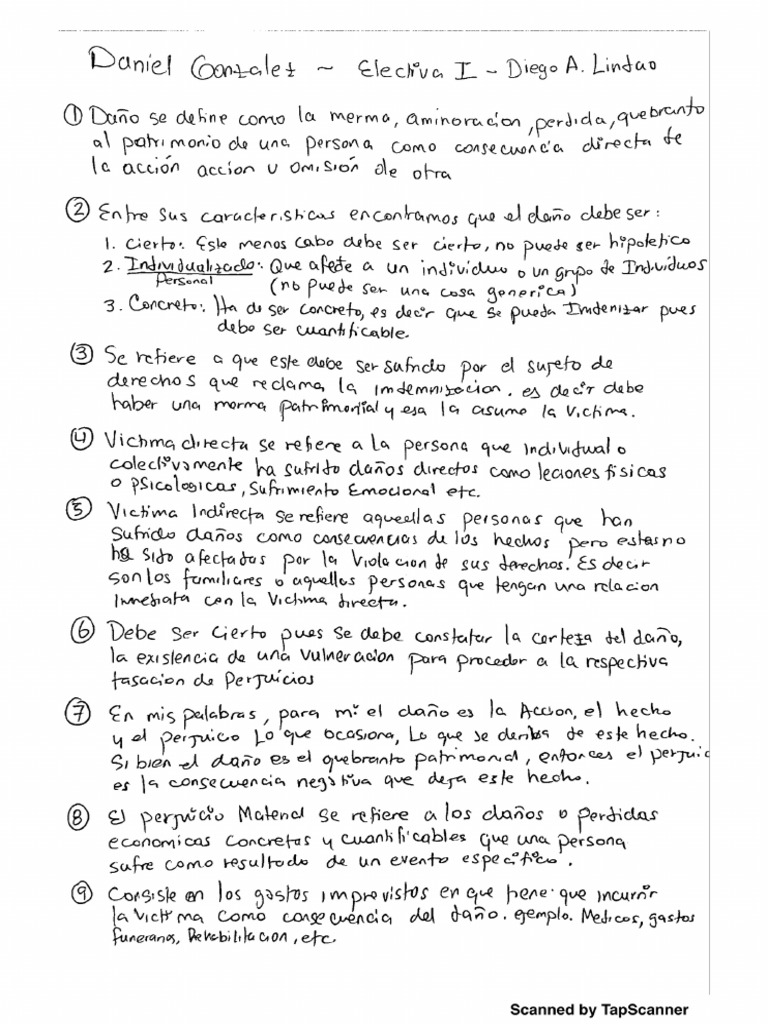 Daniel Gonzalez ~ Electiva I - Diego A. Lindao
① Daño se define como la merma, aminoracion, perdida, quebranto
al patrimonio de una persona como consecuencia directa de
la acción accion u omisión de otra
② Entre sus caracteristicas encontramos que el daño debe ser:
1. Cierto: Este menos cabo debe ser cierto, no puede ser hipotetico
2. Individualizado: Que afecte a un individuo o un grupo de Individuos
Personal (no puede ser una cosa generica)
3. Concreto: Ha de ser concreto, es decir que se pueda Indenizar pues
debo ser cuantificable.
③ Se refiere a que este debe ser sufrido por el sujeto de
derechos que reclama la indemnizacion. es decir debe
haber una merma patrimonial y esa la asume la victima.
④ Victima directa se refiere a la persona que individual o
colectivamente ha sufrido daños directos como leciones fisicas
o psicologicas, sufrimiento Emocional etc.
⑤ Victima Indirecta se refiere aquellas personas que han
sufrido daños como consecuencias de los hechos pero estas no
ha sido afectadas por la violacion de sus derechos. Es decir
son los familiares o aquellas personas que tengan una relacion
inmediata con la victima directa.
⑥ Debe ser cierto pues se debe constatar la certeza del daño,
la existencia de una vulneracion para proceder a la respectiva
tasacion de perjuicios
⑦ En mis palabras, para mi el daño es la Accion, el hecho
y el perjuico Lo que ocasiona, Lo que se deriba de este hecho.
Si bien el daño es el quebranto patrimonial, entonces el perjuic
es la consecuencia negativa que deja este hecho.
⑧ El perjuicio Material se refiere a los daños o perdidas
economicas concretos y cuantificables que una persona
sufre como resultado de un evento especifico.
⑨ Consiste en los gastos improvistos en que tiene que incurrir
la victima como consecuencia del daño. ejemplo. Medicos, gastos
funerarios, Rehabilitacion, etc.
Scanned by TapScanner